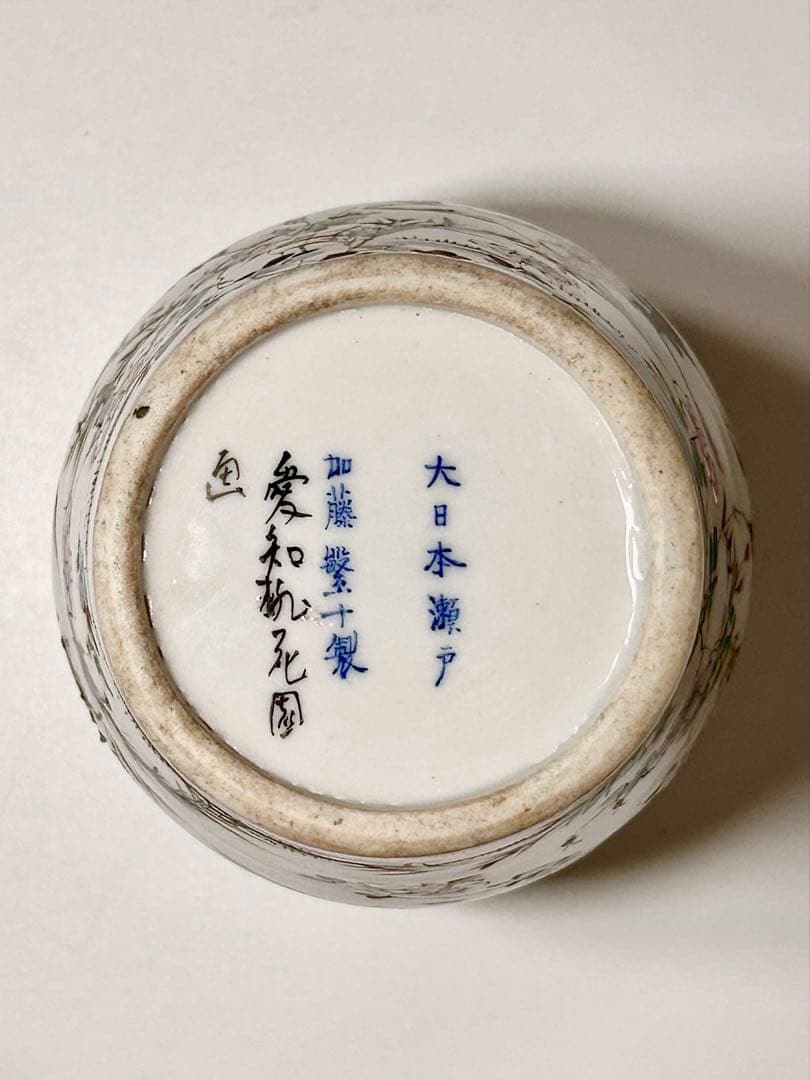 大日本瀬戸
加藤繁十製
愛知桃花園
画